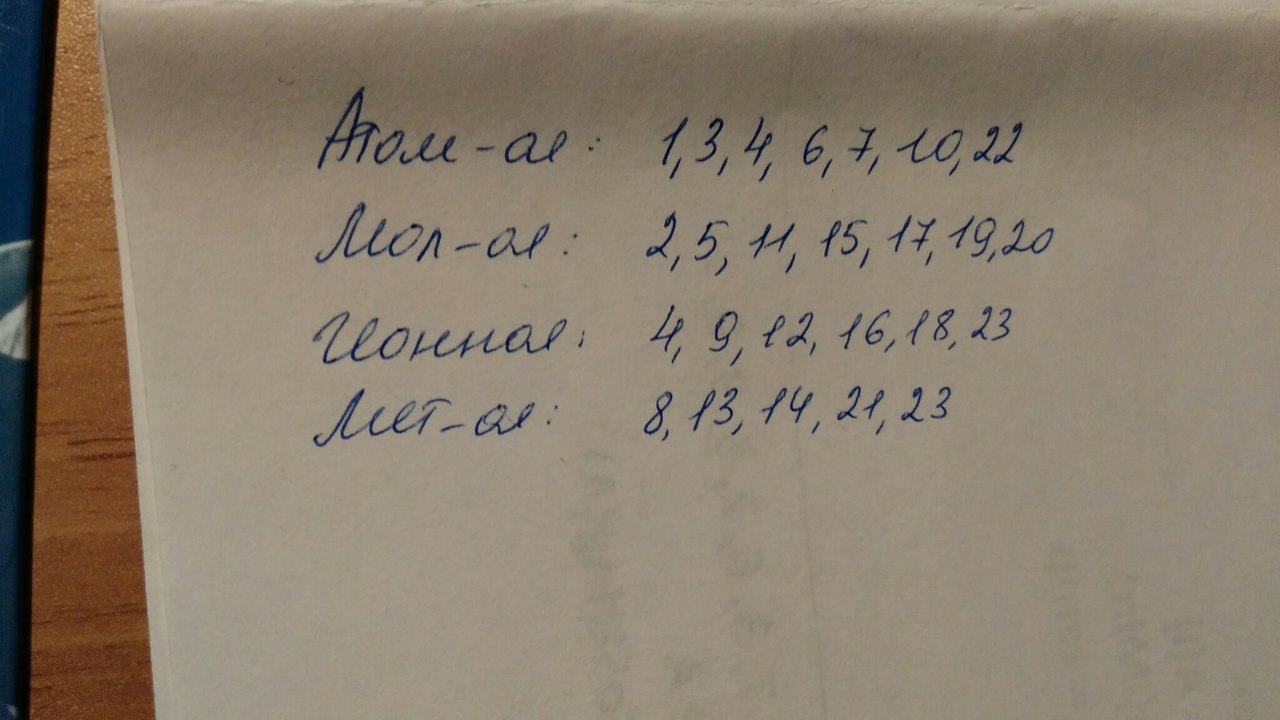 Атом-ая: 1,3,4, 6,7, 10,22
Мол-ая: 2,5, 11, 15, 17, 19,20
Ионная: 4, 9, 12, 16, 18, 23
Мет-ая: 8, 13, 14, 21, 23